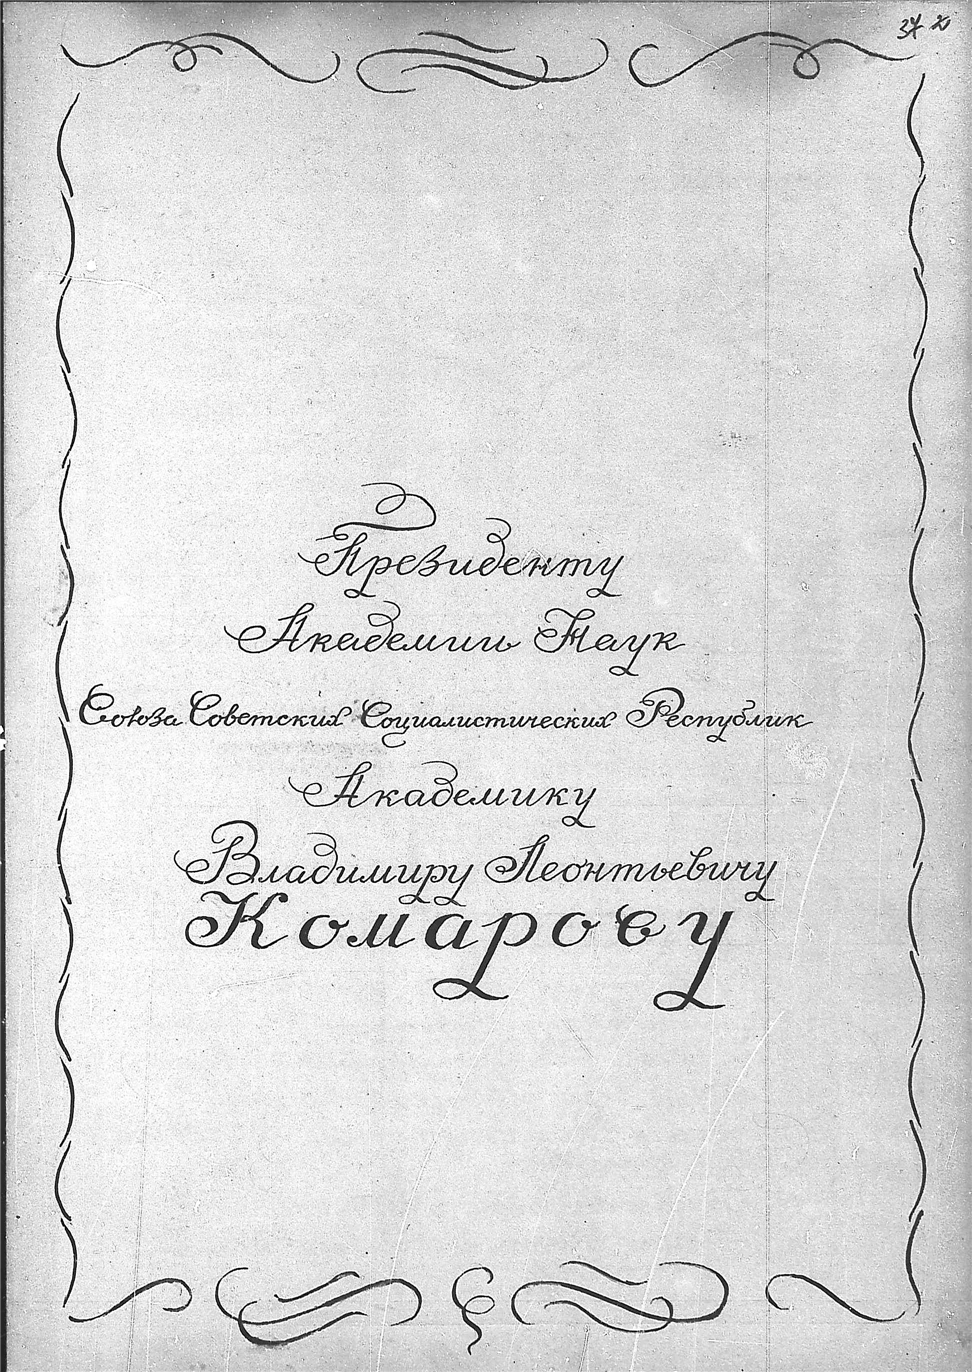 Президенту
Академии Наук
Союза Советских Социалистических Республик
Академику
Владимиру Леонтьевичу
Комарову